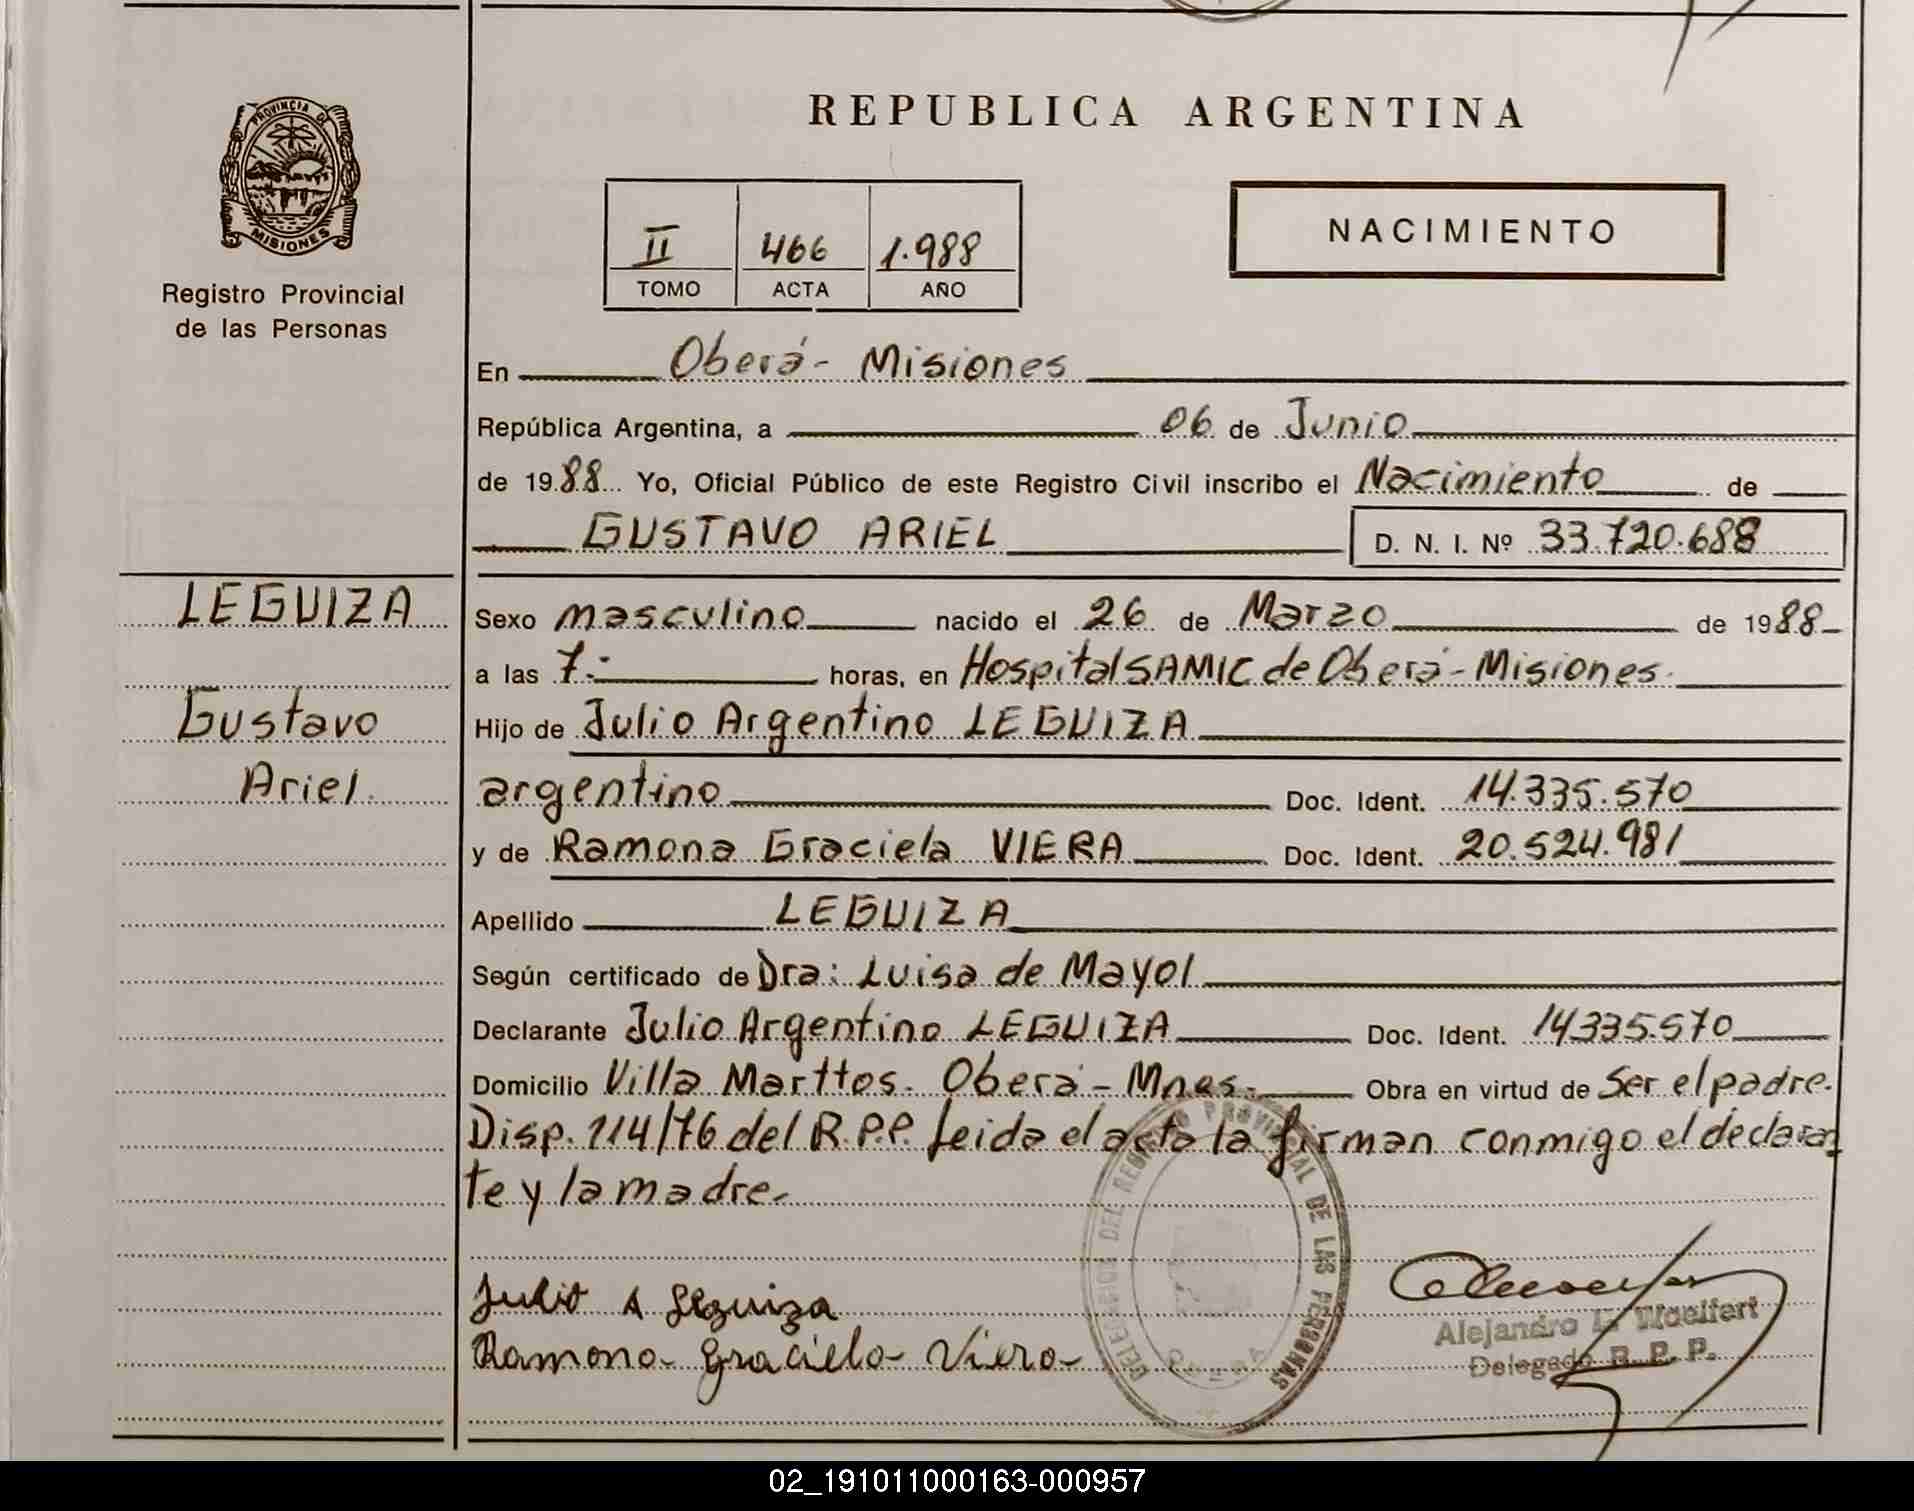 PROVINCIA DE
MISIONES
Registro Provincial
de las Personas
REPUBLICA ARGENTINA
II 466 1.988
TOMO ACTA AÑO
NACIMIENTO
En Oberá - Misiones
República Argentina, a 06 de Junio
de 1988 Yo, Oficial Público de este Registro Civil inscribo el Nacimiento de
GUSTAVO ARIEL D. N. I. Nº 33.720.688
LEGUIZA
Gustavo
Ariel
Sexo masculino nacido el 26 de Marzo de 1988
a las 7.- horas, en Hospital SAMIC de Oberá - Misiones.
Hijo de Julio Argentino LEGUIZA
argentino Doc. Ident. 14.335.570
y de Ramona Graciela VIERA Doc. Ident. 20.524.981
Apellido LEGUIZA
Según certificado de Dra: Luisa de Mayol
Declarante Julio Argentino LEGUIZA Doc. Ident. 14335.570
Domicilio Villa Marttos. Oberá - Mnes. Obra en virtud de Ser el padre.
Disp. 114/76 del R.P.P. Leida el acta la firman conmigo el declaran
te y la madre.
Julio A Leguiza
Ramona Graciela Viera
DELEGACION DEL REGISTRO PROVINCIAL DE LAS PERSONAS
OBERA
Alejandro Woelfert
Delegado R. P. P.
02_191011000163-000957